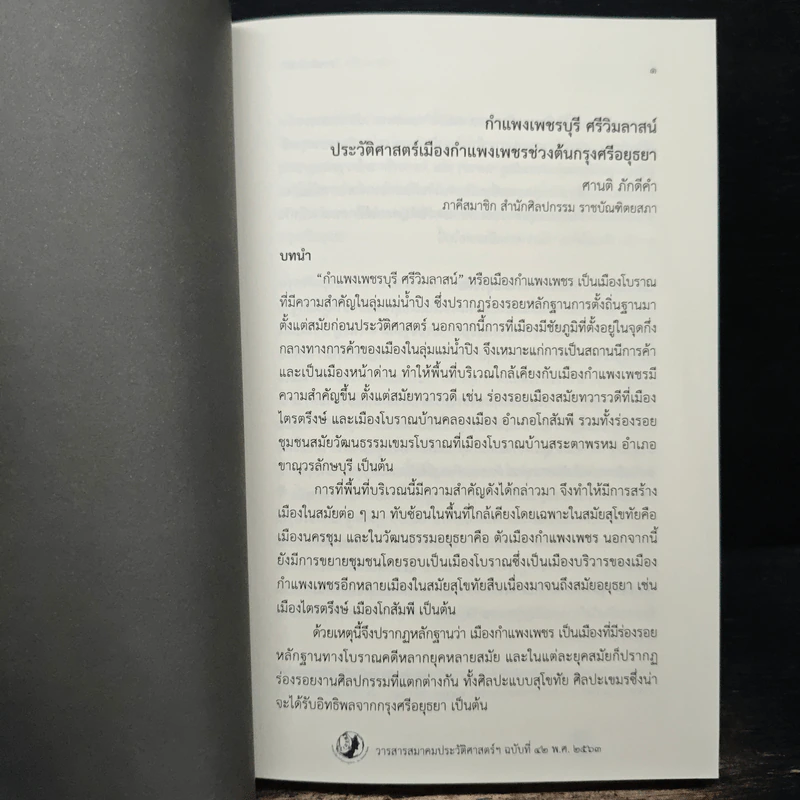 ๑
กำแพงเพชรบุรี ศรีวิมลาสน์
ประวัติศาสตร์เมืองกำแพงเพชรช่วงต้นกรุงศรีอยุธยา
ศานติ ภักดีคำ
ภาคีสมาชิก สำนักศิลปกรรม ราชบัณฑิตยสภา
บทนำ
“กำแพงเพชรบุรี ศรีวิมลาสน์” หรือเมืองกำแพงเพชร เป็นเมืองโบราณ
ที่มีความสำคัญในลุ่มแม่น้ำปิง ซึ่งปรากฏร่องรอยหลักฐานการตั้งถิ่นฐานมา
ตั้งแต่สมัยก่อนประวัติศาสตร์ นอกจากนี้การที่เมืองมีชัยภูมิที่ตั้งอยู่ในจุดกึ่ง
กลางทางการค้าของเมืองในลุ่มแม่น้ำปิง จึงเหมาะแก่การเป็นสถานนีการค้า
และเป็นเมืองหน้าด่าน ทำให้พื้นที่บริเวณใกล้เคียงกับเมืองกำแพงเพชรมี
ความสำคัญขึ้น ตั้งแต่สมัยทวารวดี เช่น ร่องรอยเมืองสมัยทวารวดีที่เมือง
ไตรตรึงษ์ และเมืองโบราณบ้านคลองเมือง อำเภอโกสัมพี รวมทั้งร่องรอย
ชุมชนสมัยวัฒนธรรมเขมรโบราณที่เมืองโบราณบ้านสระตาพรหม อำเภอ
ขาณุวรลักษบุรี เป็นต้น
การที่พื้นที่บริเวณนี้มีความสำคัญดังได้กล่าวมา จึงทำให้มีการสร้าง
เมืองในสมัยต่อ ๆ มา ทับซ้อนในพื้นที่ใกล้เคียงโดยเฉพาะในสมัยสุโขทัยคือ
เมืองนครชุม และในวัฒนธรรมอยุธยาคือ ตัวเมืองกำแพงเพชร นอกจากนี้
ยังมีการขยายชุมชนโดยรอบเป็นเมืองโบราณซึ่งเป็นเมืองบริวารของเมือง
กำแพงเพชรอีกหลายเมืองในสมัยสุโขทัยสืบเนื่องมาจนถึงสมัยอยุธยา เช่น
เมืองไตรตรึงษ์ เมืองโกสัมพี เป็นต้น
ด้วยเหตุนี้จึงปรากฏหลักฐานว่า เมืองกำแพงเพชร เป็นเมืองที่มีร่องรอย
หลักฐานทางโบราณคดีหลากยุคหลายสมัย และในแต่ละยุคสมัยก็ปรากฏ
ร่องรอยงานศิลปกรรมที่แตกต่างกัน ทั้งศิลปะแบบสุโขทัย ศิลปะเขมรซึ่งน่า
จะได้รับอิทธิพลจากกรุงศรีอยุธยา เป็นต้น
วารสารสมาคมประวัติศาสตร์ฯ ฉบับที่ ๔๒ พ.ศ. ๒๕๖๓